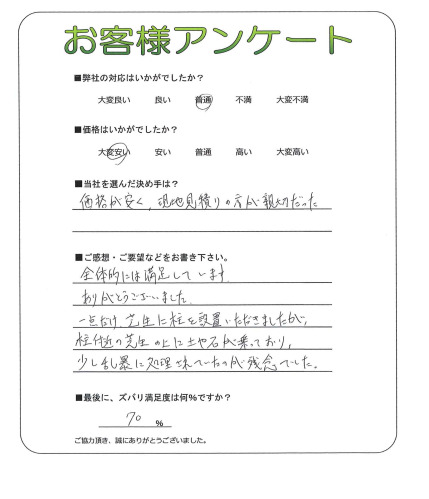 お客様アンケート
■弊社の対応はいかがでしたか？
大変良い　良い　普通　不満　大変不満
■価格はいかがでしたか？
大変安い　安い　普通　高い　大変高い
■当社を選んだ決め手は？
価格が安く、現地見積りの方が親切だった
■ご感想・ご要望などをお書き下さい。
全体的には満足しています。
ありがとうございました。
一点だけ、芝生に柱を設置いただきましたが、
柱付近の芝生の上に土や石が乗っており、
少し乱暴に処理されていたのが残念でした。
■最後に、ズバリ満足度は何％ですか？
70 ％
ご協力頂き、誠にありがとうございました。